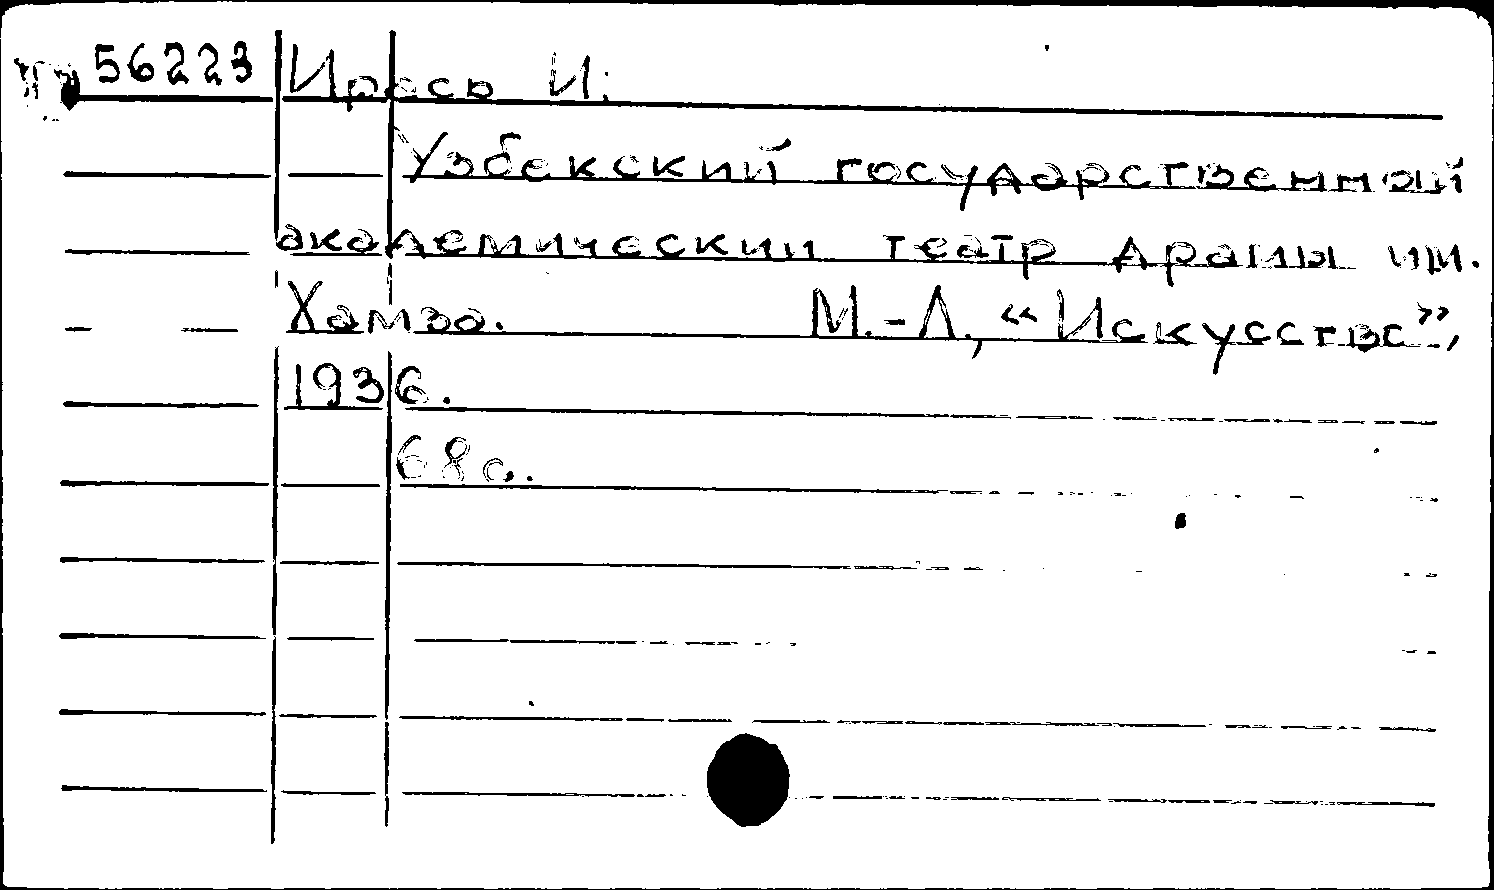 56223 Ирась И.
Узбекский государственный
академический театр драмы им.
Хамза. М.-Л., “Искусство”,
1936.
68 с.